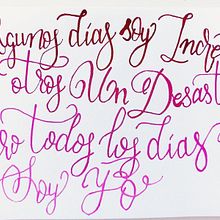 gunos días soy Incre
otros Un Desast
ro todos los días
Soy Yo